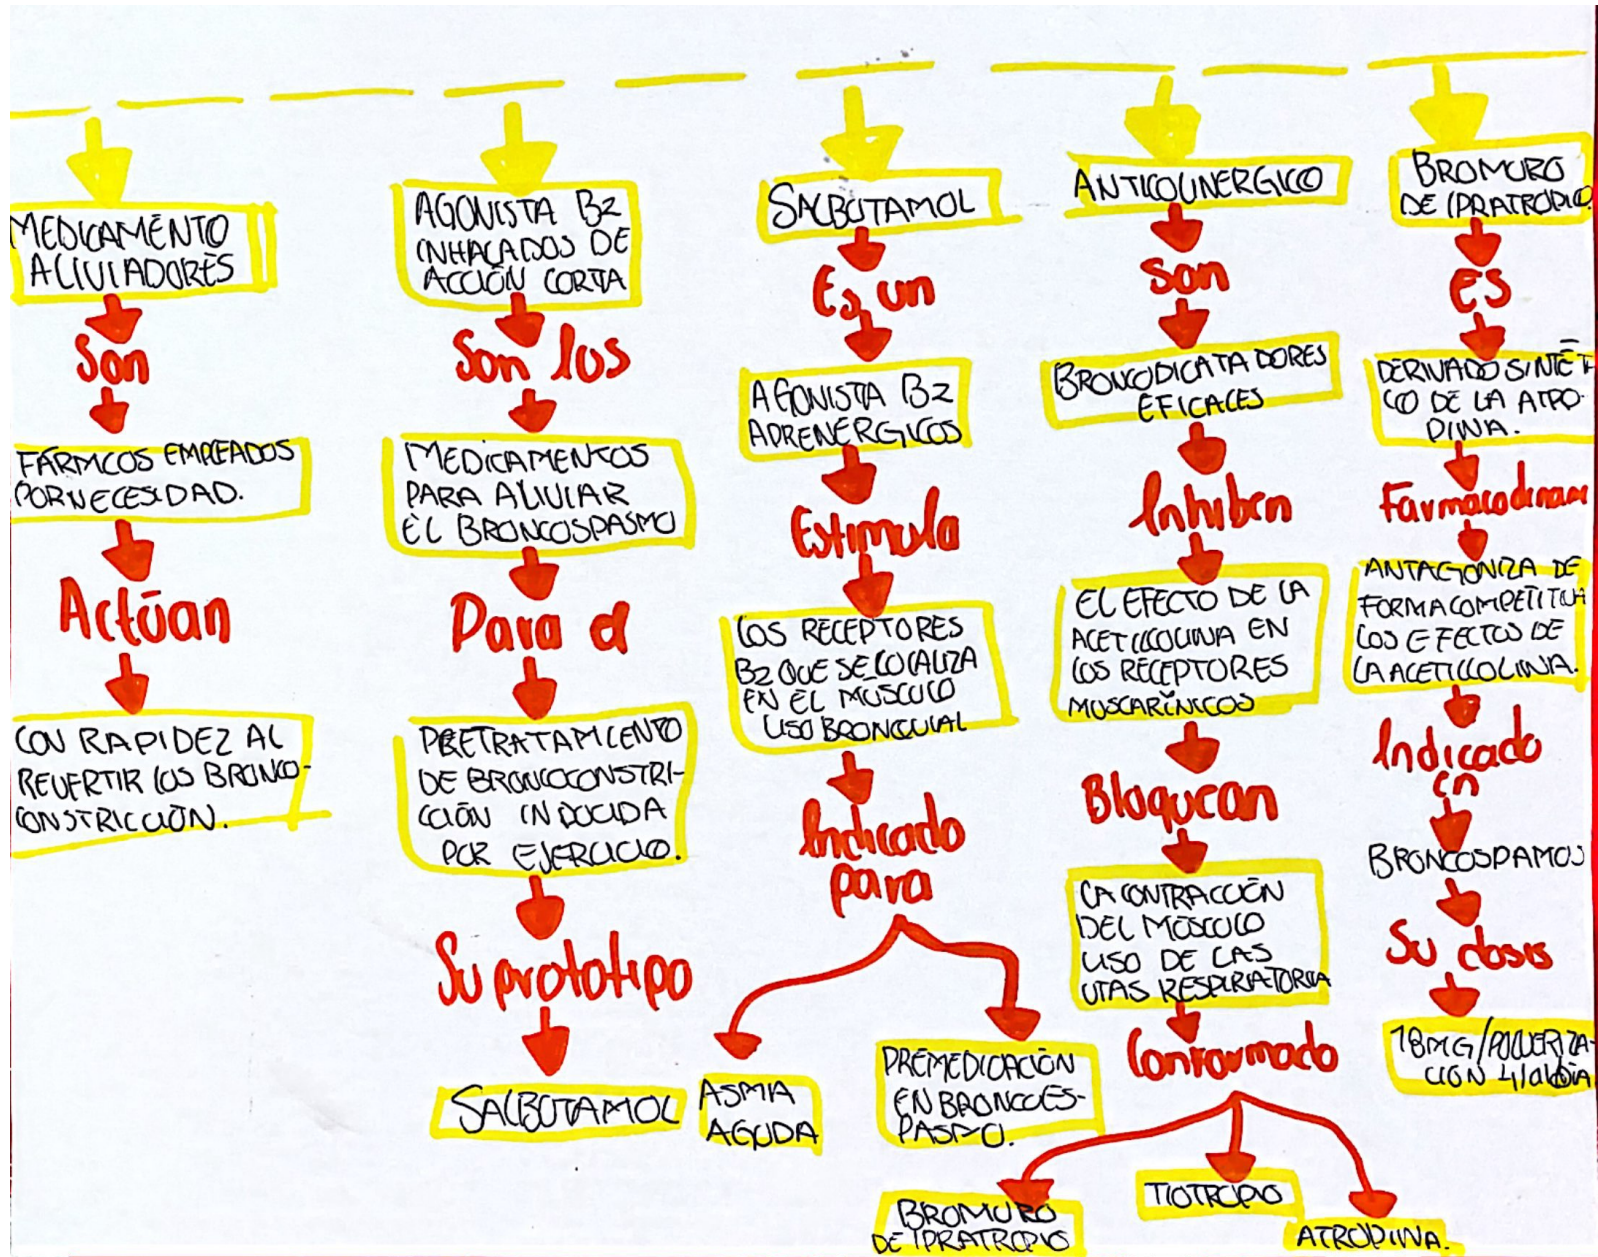 MEDICAMENTO
ALIVIADORES
Son
FÁRMCOS EMPLEADOS
POR NECESIDAD.
Actúan
CON RAPIDEZ AL
REVERTIR LOS BRONCO-
CONSTRICCIÓN.
AGONISTA B2
INHALADOS DE
ACCIÓN CORTA
Son los
MEDICAMENTOS
PARA ALIVIAR
EL BRONCOSPASMO
Para el
PRETRATAMIENTO
DE BRONCOCONSTRI-
CCIÓN INDUCIDA
POR EJERCICIO.
Su prototipo
SALBUTAMOL
SALBUTAMOL
Es un
AGONISTA B2
ADRENERGICOS
Estimula
LOS RECEPTORES
B2 QUE SE LOCALIZA
EN EL MUSCULO
LISO BRONQUIAL
Indicado
para
ASMA
AGUDA
PREMEDICACIÓN
EN BRONCOES-
PASMO.
ANTICOLINERGICO
son
BRONCODILATADORES
EFICALES
Inhiben
EL EFECTO DE LA
ACETILCOLINA EN
LOS RECEPTORES
MUSCARÍNICOS
Bloquean
LA CONTRACCIÓN
DEL MÚSCULO
LISO DE LAS
VIAS RESPIRATORIA
Conformado
BROMURO
DE IPRATROPIO
TIOTROPIO
ATROPINA.
BROMURO
DE IPRATROPIO
es
DERIVADO SINTÉTI
CO DE LA ATRO-
PINA.
Farmacodinam
ANTAGONIZA DE
FORMA COMPETITIVA
LOS EFECTOS DE
LA ACETILCOLINA.
Indicado
en
BRONCOSPAMOS
Su dosis
18MG/PULVERIZA-
CIÓN 4/al DÍA